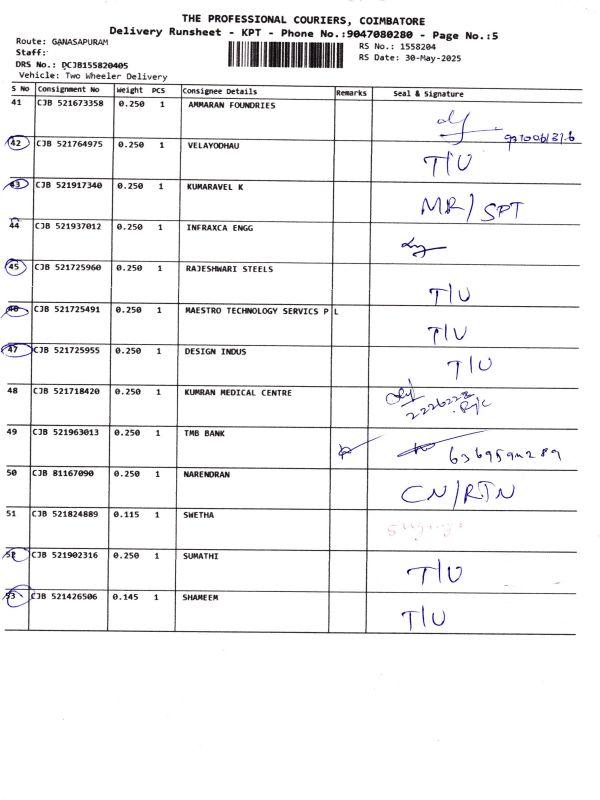 THE PROFESSIONAL COURIERS, COIMBATORE
Delivery Runsheet - KPT - Phone No.:9047080280 - Page No.:5
Route: GANASAPURAM
RS No.: 1558204
Staff:
RS Date: 30-May-2025
DRS No.: DCJB155820405
Vehicle: Two Wheeler Delivery
S No Consignment No Weight PCS Consignee Details Remarks Seal & Signature
41 CJB 521673358 0.250 1 AMMARAN FOUNDRIES
42 CJB 521764975 0.250 1 VELAYODHAU T/U
43 CJB 521917340 0.250 1 KUMARAVEL K MR/SPT
44 CJB 521937012 0.250 1 INFRAXCA ENGG
45 CJB 521725960 0.250 1 RAJESHWARI STEELS T/U
46 CJB 521725491 0.250 1 MAESTRO TECHNOLOGY SERVICS P L T/U
47 CJB 521725955 0.250 1 DESIGN INDUS T/U
48 CJB 521718420 0.250 1 KUMRAN MEDICAL CENTRE
49 CJB 521963013 0.250 1 TMB BANK
50 CJB 81167090 0.250 1 NARENDRAN CN/RTN
51 CJB 521824889 0.115 1 SWETHA
52 CJB 521902316 0.250 1 SUMATHI T/U
53 CJB 521426506 0.145 1 SHAMEEM T/U